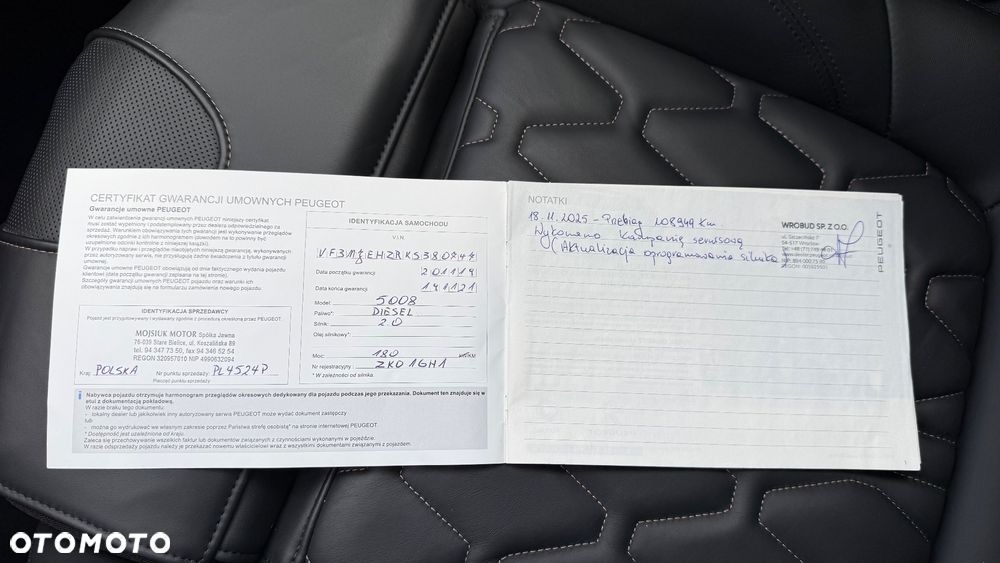 CERTYFIKAT GWARANCJI UMOWNYCH PEUGEOT
Gwarancje umowne PEUGEOT
W celu zatwierdzenia gwarancji umownych PEUGEOT niniejszy certyfikat
musi zostać wypełniony i podstemplowany przez dealera odpowiedzialnego za
sprzedaż. Warunkiem obowiązywania tych gwarancji jest wykonywanie przeglądów
okresowych zgodnie z ich harmonogramem (dowodem na to powinny być
uzupełnione odcinki kontrolne z niniejszej książki).
W przypadku napraw i przeglądów nieobjętych niniejszą gwarancją, wykonywanych
przez autoryzowany serwis, nie przysługują żadne świadczenia z tytułu gwarancji
umownej.
Gwarancje umowne PEUGEOT obowiązują od dnia faktycznego wydania pojazdu
klientowi (data początku gwarancji zapisana na tej stronie).
Szczegóły gwarancji umownych PEUGEOT oraz warunki ich
obowiązywania znajdują się na formularzu zamówienia nowego pojazdu.
IDENTYFIKACJA SPRZEDAWCY
Pojazd jest przygotowywany i wydawany zgodnie z procedurą określoną przez PEUGEOT.
MOJSIUK MOTOR Spółka Jawna
76-039 Stare Bielice, ul. Koszalińska 89
tel. 94 347 73 50, fax 94 346 52 54
REGON 320957010 NIP 4990632094
Kraj: POLSKA Nr punktu sprzedaży: PL4524P
Pieczęć punktu sprzedaży
IDENTYFIKACJA SAMOCHODU
V.I.N.
Data początku gwarancji 201119
Data końca gwarancji 191121
Model: 5008
Paliwo*: DIESEL
Silnik: 2.0
Olej silnikowy*:
Moc: 180 kW/KM
Nr rejestracyjny: ZKO1GH1
* W zależności od silnika.
Nabywca pojazdu otrzymuje harmonogram przeglądów okresowych dedykowany dla pojazdu podczas jego przekazania. Dokument ten znajduje się w
etui z dokumentacją pokładową.
W razie braku tego dokumentu:
- lokalny dealer lub jakikolwiek inny autoryzowany serwis PEUGEOT może wydać dokument zastępczy
lub
- można go wydrukować we własnym zakresie poprzez Państwa strefę osobistą* na stronie internetowej PEUGEOT.
* Dostępność jest uzależniona od kraju.
Zaleca się przechowywanie wszelkich faktur lub dokumentów związanych z czynnościami wykonanymi w pojeździe.
W razie odsprzedaży pojazdu należy je przekazać nowemu właścicielowi wraz z wszystkimi dokumentami związanymi z pojazdem.
NOTATKI
18.11.2025 - Przebieg 108949 km
Wykonano kampanię serwisową
(Aktualizacja oprogramowania silnika)
WROBUD SP. Z O.O.
PEUGEOT
OTOMOTO